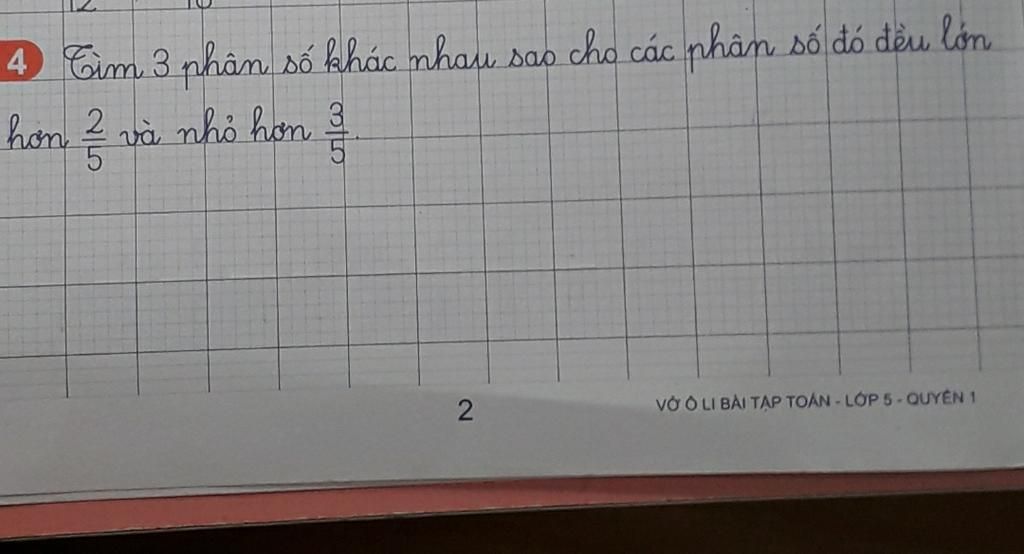 4 Tìm 3 phân số khác nhau sao cho các phân số đó đều lớn
hơn 2/5 và nhỏ hơn 3/5.
2
VỞ Ô LI BÀI TẬP TOÁN - LỚP 5 - QUYỂN 1